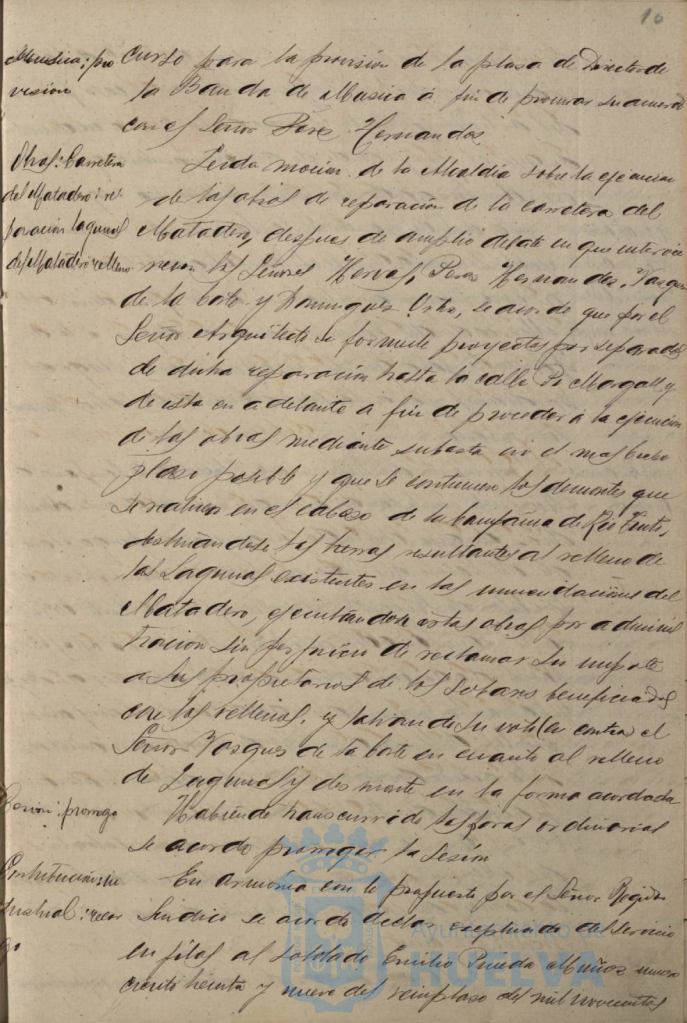 10
Musica: pro
vision
curso para la provisión de la plasa de Director de
la Banda de Musica á fin de procurar su acuerdo
con el Señor Peres Hernandes
Obras: Carretera
del Matadero: re
paración lagunas
del Matadero: relleno
Leida mocion de la Alcaldia sobre la ejecucion
de las obras de reparación de la carretera del
Matadero, despues de amplio debate en que intervi
nieron los Señores Hervas, Peres Hernandes, Vasques
de la Corte y Dominguez, se acordó que por el
Señor Arquitecto se formule proyectos por separado
de dicha reparación hasta la calle Pi Margall y
de esta en adelante a fin de proceder á la ejecucion
de las obras mediante subasta en el mas breve
plaso posible y que se continuen los desmontes que
se realizan en el cabeso de la Compañia de Rio Tinto,
destinandose las tierras resultantes al relleno de
las Lagunas existentes en las inmediaciones del
Matadero, ejecutandose estas obras por adminis
tracion sin perjuicio de reclamar su importe
a los propietarios de los solares beneficiados
con los rellenos, y salvando su voto en contra el
Señor Vasques de la Corte en cuanto al relleno
de Lagunas y desmonte en la forma acordada
Sesion: prorroga
Habiendo transcurrido las horas ordinarias
se acordó prorrogar la sesión
En armonia con lo propuesto por el Señor Regidor
Sindico se acordó declarar exceptuado del servicio
en filas al soldado Emilio Pineda Muñoz numero
ciento treinta y nueve del reemplaso del mil novecientos
AYUNTAMIENTO DE
HUELVA